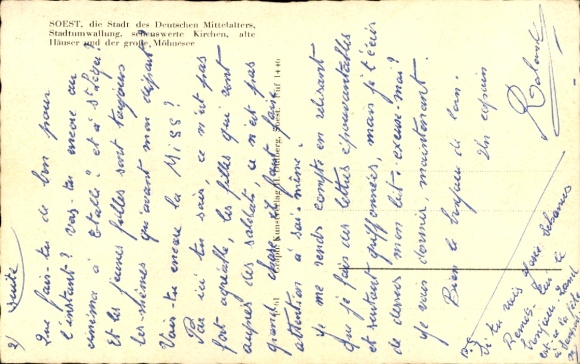 SOEST, die Stadt des Deutschen Mittelalters,
Stadtumwallung, sehenswerte Kirchen, alte
Häuser und der große Möhnesee
2) suite
Que fais-tu de bon pour
l'instant? Vas-tu encore au
cinéma à Etalle? et à St Léger
Et les jeunes filles sont toujours
les mêmes qu'avant mon départ?
Vois-tu encore la Miss?
Par ici tu sais, ce n'est pas
fort agréable, les filles qui vont
auprès des soldats, ce n'est pas
grand chose, il faut faire
attention à soi-même!
Je me rends compte en relisant
que je fais des lettres épouvantables
et surtout griffonnées, mais je t'écris
de dessus mon lit, excuse-moi?
Je vais dormir, maintenant.
Bien le bonjour de loin.
Un copain
P.S.
Si tu vois José